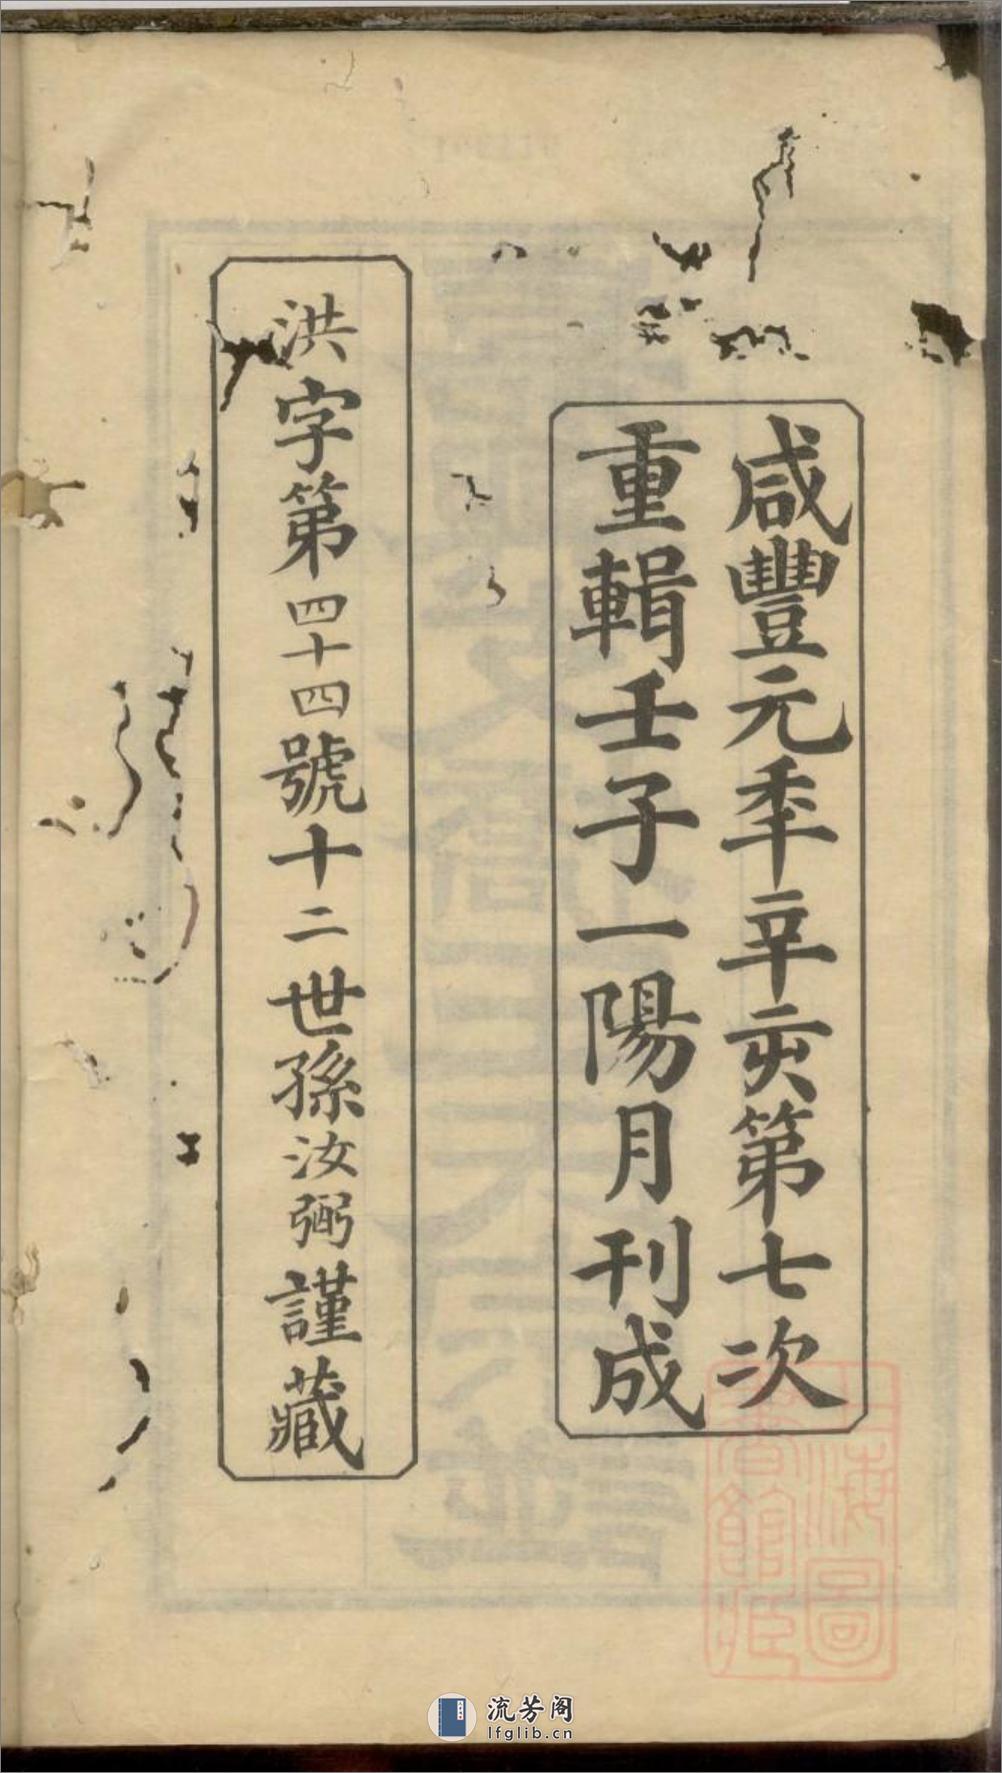 咸豐元秊辛亥第七次
重輯壬子一陽月刊成
洪字第四十四號十二世孫汝弼謹藏
上海圖
書館藏
流芳阁
lfglib.cn